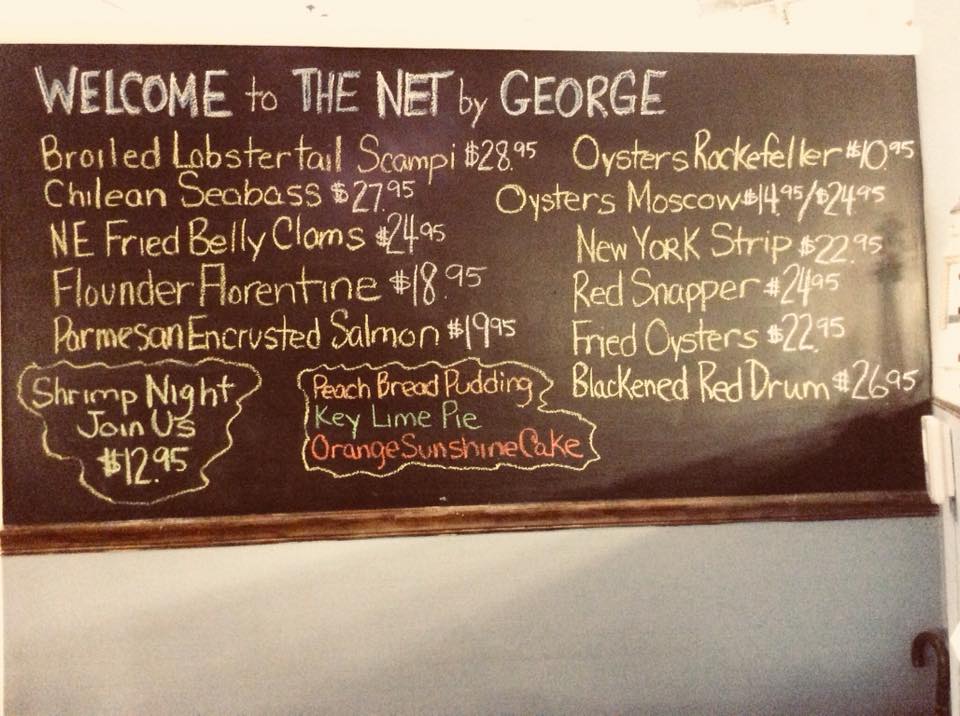 WELCOME to THE NET by GEORGE
Broiled Lobstertail Scampi $28.95
Chilean Seabass $27.95
NE Fried Belly Clams $24.95
Flounder Florentine $18.95
Parmesan Encrusted Salmon $19.95
Oysters Rockefeller $10.95
Oysters Moscow $14.95/$24.95
New York Strip $22.95
Red Snapper $24.95
Fried Oysters $22.95
Blackened Red Drum $26.95
Shrimp Night
Join Us
$12.95
Peach Bread Pudding
Key Lime Pie
Orange Sunshine Cake